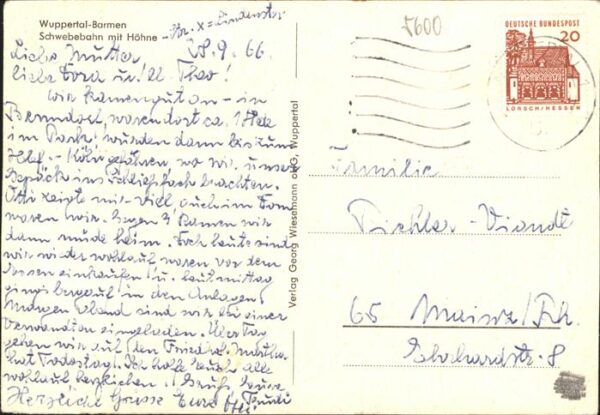 Wuppertal-Barmen
Schwebebahn mit Höhne
Br. X = Lindenstr.
28.9.66.
Liebe Mutter
liebe Dora u. Kl. Theo!
wir kamen gut an - in
waren dort ca. 1 Std
im Park, wurden dann bis zum
Hbf. - Köln gefahren, wo wir unser
Gepäck im Schließfach brachten.
Otti zeigte mir viel auch im Dom
waren wir. Gegen 4 kamen wir
dann müde heim. Doch heute sind
wir wieder wohlauf waren vor dem
Essen einkaufen u. heut mittag
ging's bergauf in den Anlagen
Morgen Abend sind wir bei einer
Verwandten eingeladen.
gehen wir auf den Friedh. Martha
hat Todestag. Ich hoffe Euch alle
wohlauf herzlichen Gruß Eure Trudi
Herzliche Grüsse Eure Otti
Verlag Georg Wiesemann oHG, Wuppertal
5600
DEUTSCHE BUNDESPOST
20
LORSCH/HESSEN
Familie
Fichter-Viandt
65 Mainz/Rh.
Ehrhardstr. 8